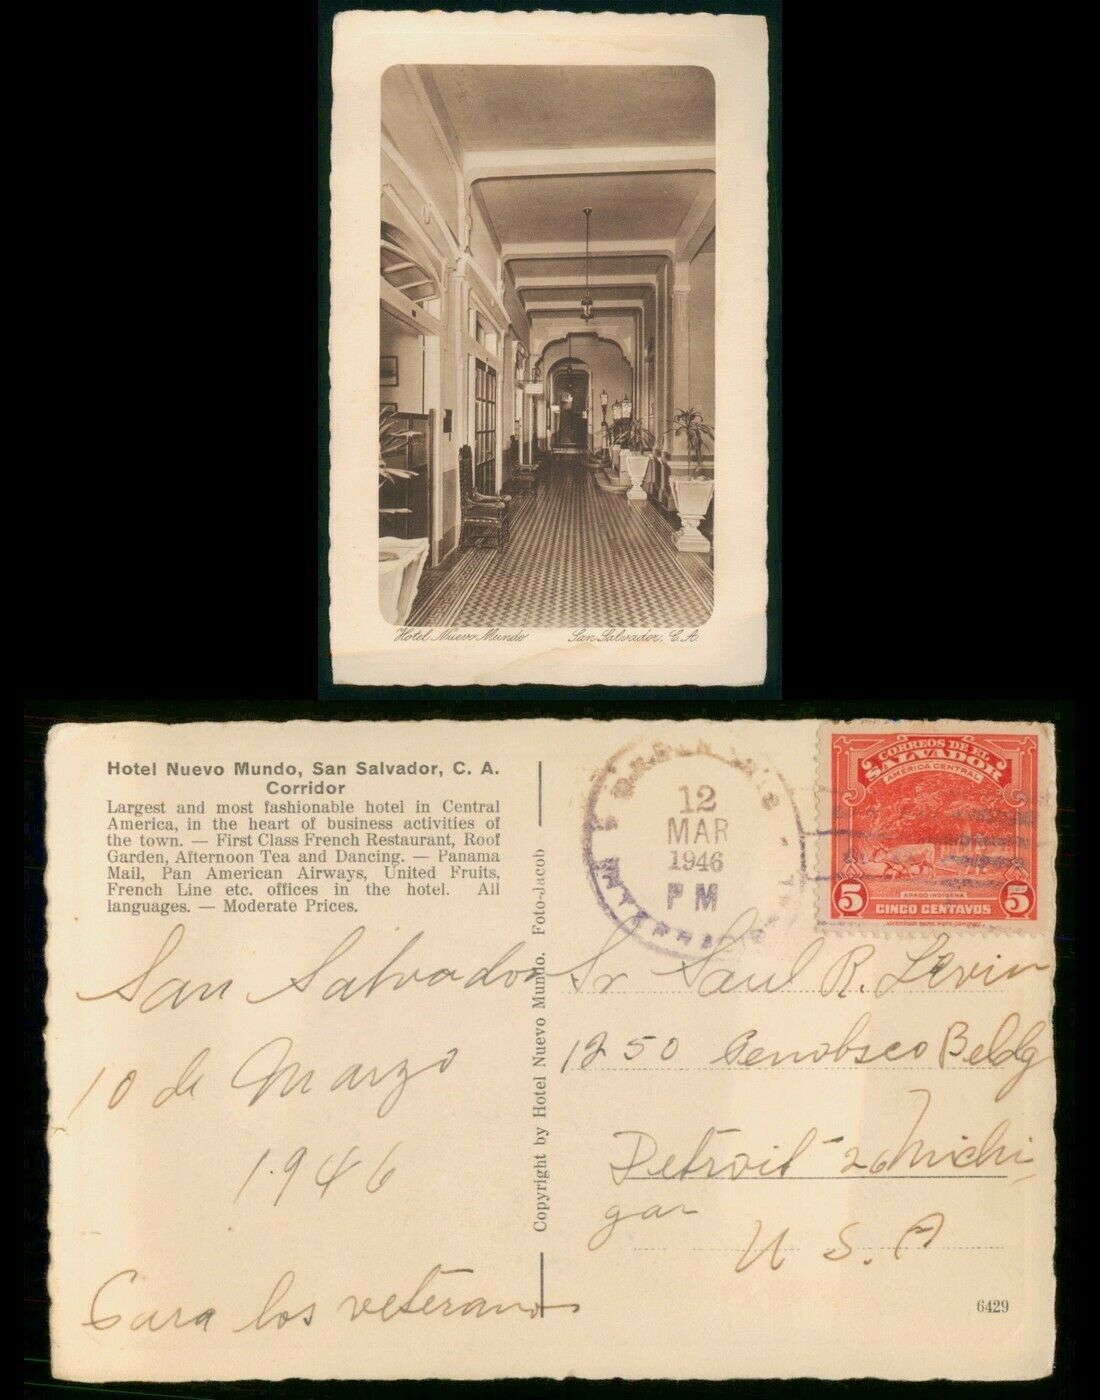 Hotel Nuevo Mundo San Salvador, C. A.
Hotel Nuevo Mundo, San Salvador, C. A.
Corridor
Largest and most fashionable hotel in Central
America, in the heart of business activities of
the town. — First Class French Restaurant, Roof
Garden, Afternoon Tea and Dancing. — Panama
Mail, Pan American Airways, United Fruits,
French Line etc. offices in the hotel. All
languages. — Moderate Prices.
San Salvador
10 de Marzo
1946
Para los veteranos
Copyright by Hotel Nuevo Mundo. Foto-Jacob
12
MAR
1946
PM
CORREOS DE EL
SALVADOR
AMERICA CENTRAL
ARADO INDIGENA
5 CINCO CENTAVOS 5
AMERICAN BANK NOTE COMPANY
Sr Saul R. Levin
1250 Penobsco Beldg
Detroit 26 Michi
gan
U. S. A
6429